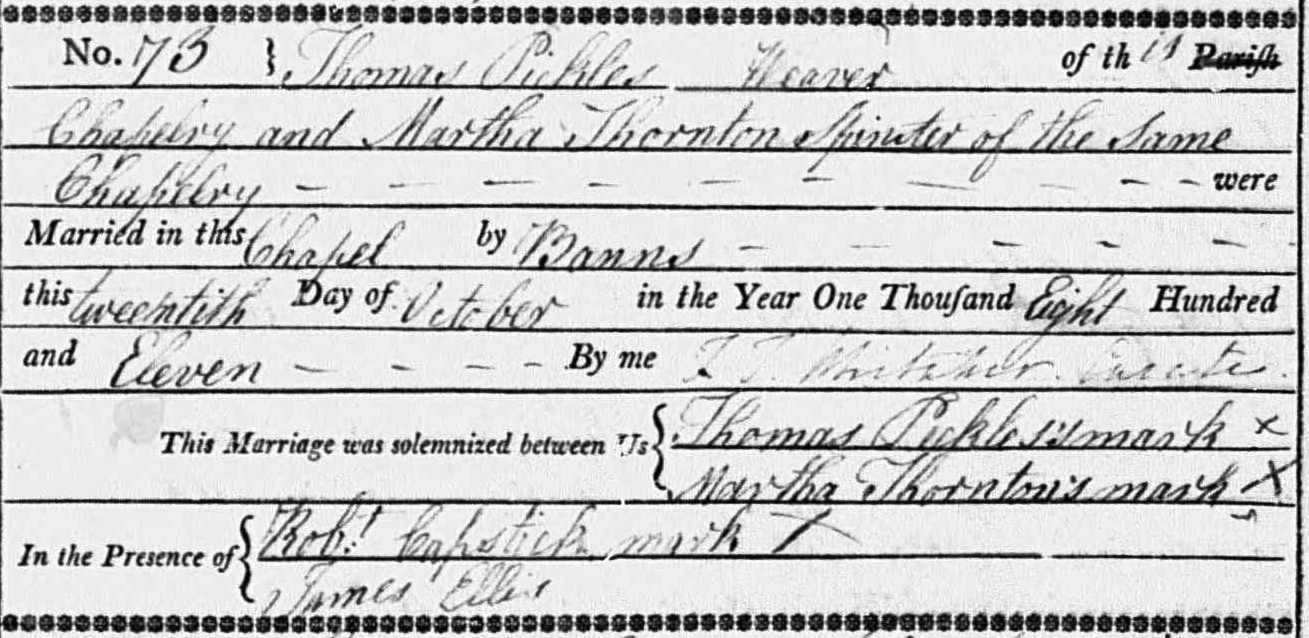 No. 73 } Thomas Pickles Weaver of this Parish
Chapelry and Martha Thornton Spinster of the Same
Chapelry - - - - - - - - - were
Married in this Chapel by Banns - - - - -
this twentith Day of October in the Year One Thouſand Eight Hundred
and Eleven - - - - By me Whitaker Curate.
This Marriage was solemnized between Us { Thomas Pickles's mark X
Martha Thornton's mark X
In the Presence of { Robt. Capstick mark X
James Ellis